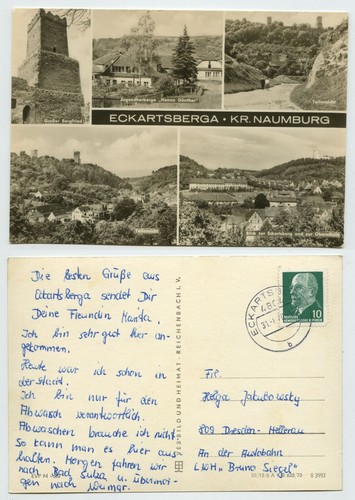 Großer Bergfried
Jugendherberge „Hanno Günther"
Teilansicht
ECKARTSBERGA · KR. NAUMBURG
Teilansicht
Blick zur Eckartsburg und zur Oberschule
Die besten Grüße aus
Eckartsberga sendet Dir
Deine Freundin
Ich bin sehr gut hier an-
gekommen.
Heute war ich schon in
der Stadt.
Ich bin nur für den
Abwasch verantwortlich.
Abwaschen brauche ich nicht.
So kann man es hier aus-
halten. Morgen fahren wir
nach Bad Sulza u. übermor-
gen nach Weimar.
VEB BILD UND HEIMAT · REICHENBACH I. V.
ECKARTSB
10
b
Helga Jakubowsky
809 Dresden-Hellerau
An der Autobahn
"Bruno Siegel"